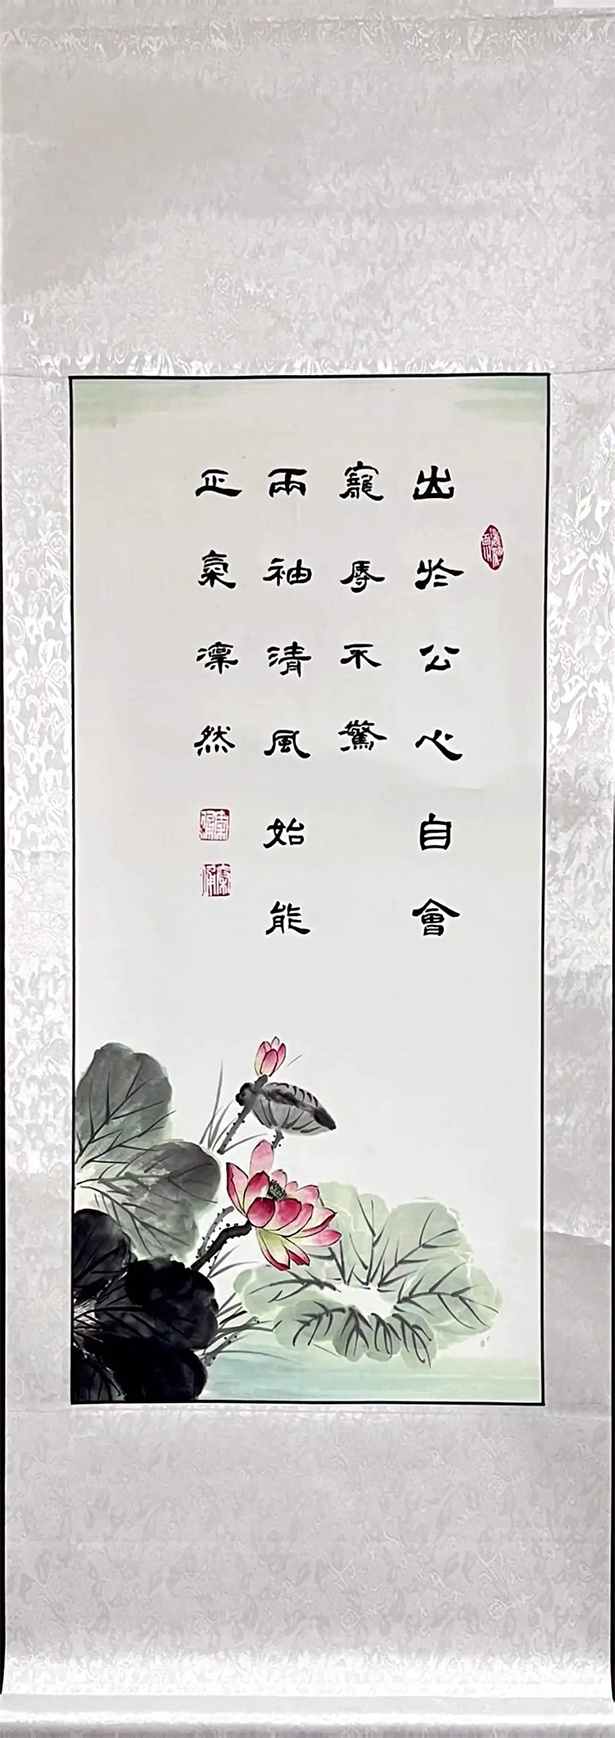 出於公心自會
寵辱不驚
兩袖清風始能
正氣凜然